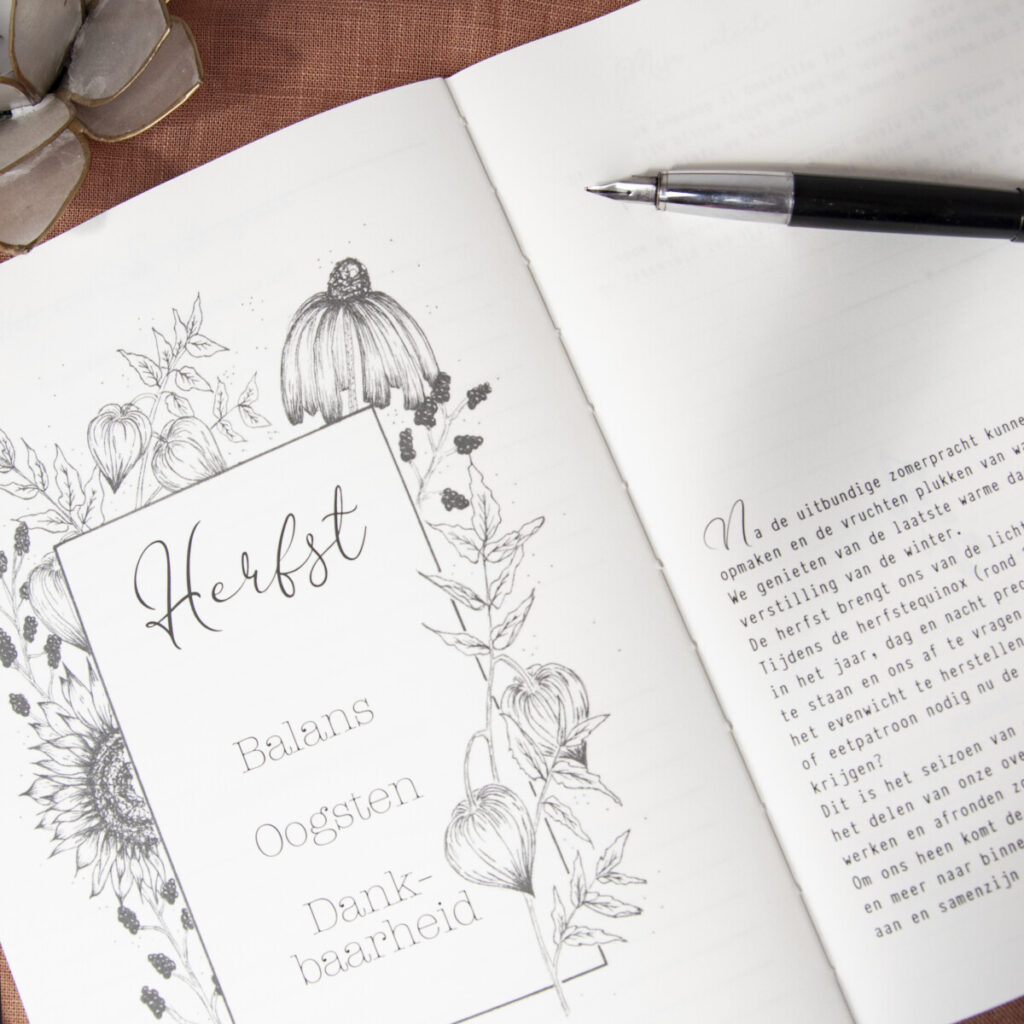 Herfst
Balans
Oogsten
Dank-
baarheid
Na de uitbundige zomerpracht kunne
opmaken en de vruchten plukken van wa
We genieten van de laatste warme da
verstilling van de winter.
De herfst brengt ons van de licht
Tijdens de herfstequinox (rond
in het jaar, dag en nacht prec
te staan en ons af te vragen
het evenwicht te herstellen
of eetpatroon nodig nu de
krijgen?
Dit is het seizoen van
het delen van onze ove
werken en afronden zo
Om ons heen komt de
en meer naar binne
aan en samenzijn